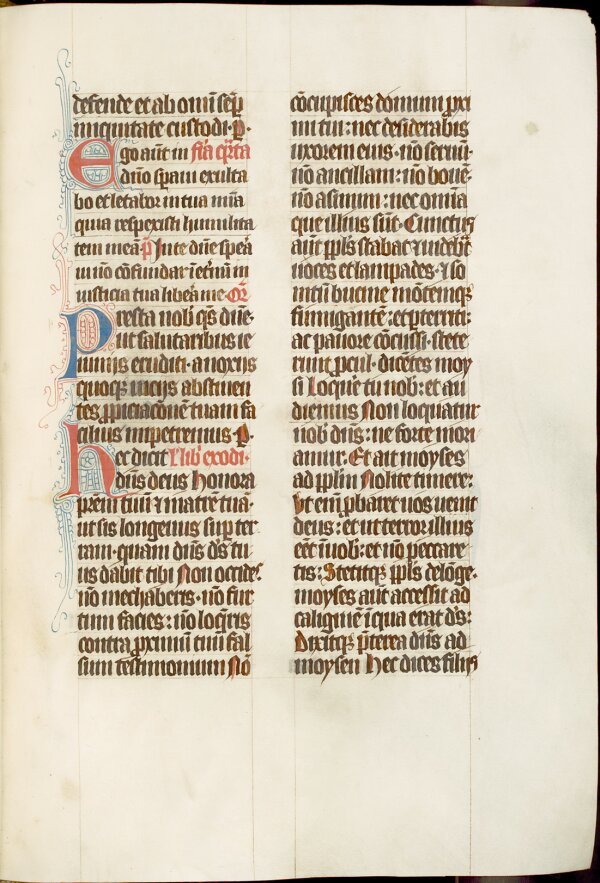 defende et ab om̄i sēp
iniquitate custodi· p̄·
Ego aūt in fīa qr̄ta
dn̄o sp̄aui exulta
bo et letabor in tua mīa
quia respexisti humilita
tem meā p̄ In te dn̄e spera
ui nō cōfundar ī etn̄ū in
iusticia tua libera me· Or̄
Presta nob̄ qs̄ dn̄e·
ut salutaribus ie
iunijs eruditi· a noxijs
quoqꝫ vicijs abstinen
tes ꝓpiciacōnem tuam fa
cilius impetremus p̄·
hec dicit l'lib̄ exodi·
dn̄s deus Honora
pr̄em tuū ⁊ matrē tuā·
ut sis longeuus suꝑ ter
ram· quam dn̄s ds̄ tu
us dabit tibi Non occides·
nō mechaberis· nō fur
tum facies: nō loq̄ris
contra ꝓximū tuū fal
sum testimonium Nō
cōcupisces domum ꝓxi
mi tui: nec desiderabis
uxorem eius· nō seruū·
nō ancillam: nō boue·
nō asinum: nec omīa
que illius sūt· Cunctus
aūt ppl̄s stabat ⁊ videb̄t
voces et lampades· ⁊ so
nitū bucine mōtemqꝫ
fumigantē: et ꝑterriti:
ac pauore cōcussi· stete
runt ꝓcul· dicētes moy
si Loqr̄e tu nob̄: et au
diemus Non loquatur
nob̄ dn̄s: ne forte mori
amur· Et ait moyses
ad ppl̄m Nolite timere:
Ut eni ꝓbaret uos venit
deus: et ut terror illius
eēt ī uob̄: et nō peccare
tis: Stetitqꝫ ppl̄s de lōge·
moyses aūt accessit ad
caliginē ī qua erat ds̄:
Dixitqꝫ p̄terea dn̄s ad
moysen Hec dices filijs